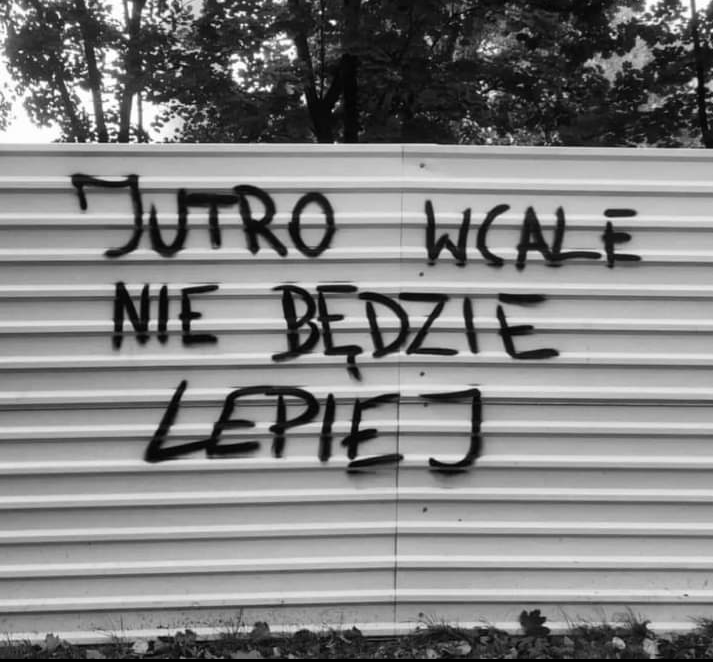 JUTRO WCALE
NIE BĘDZIE
LEPIEJ